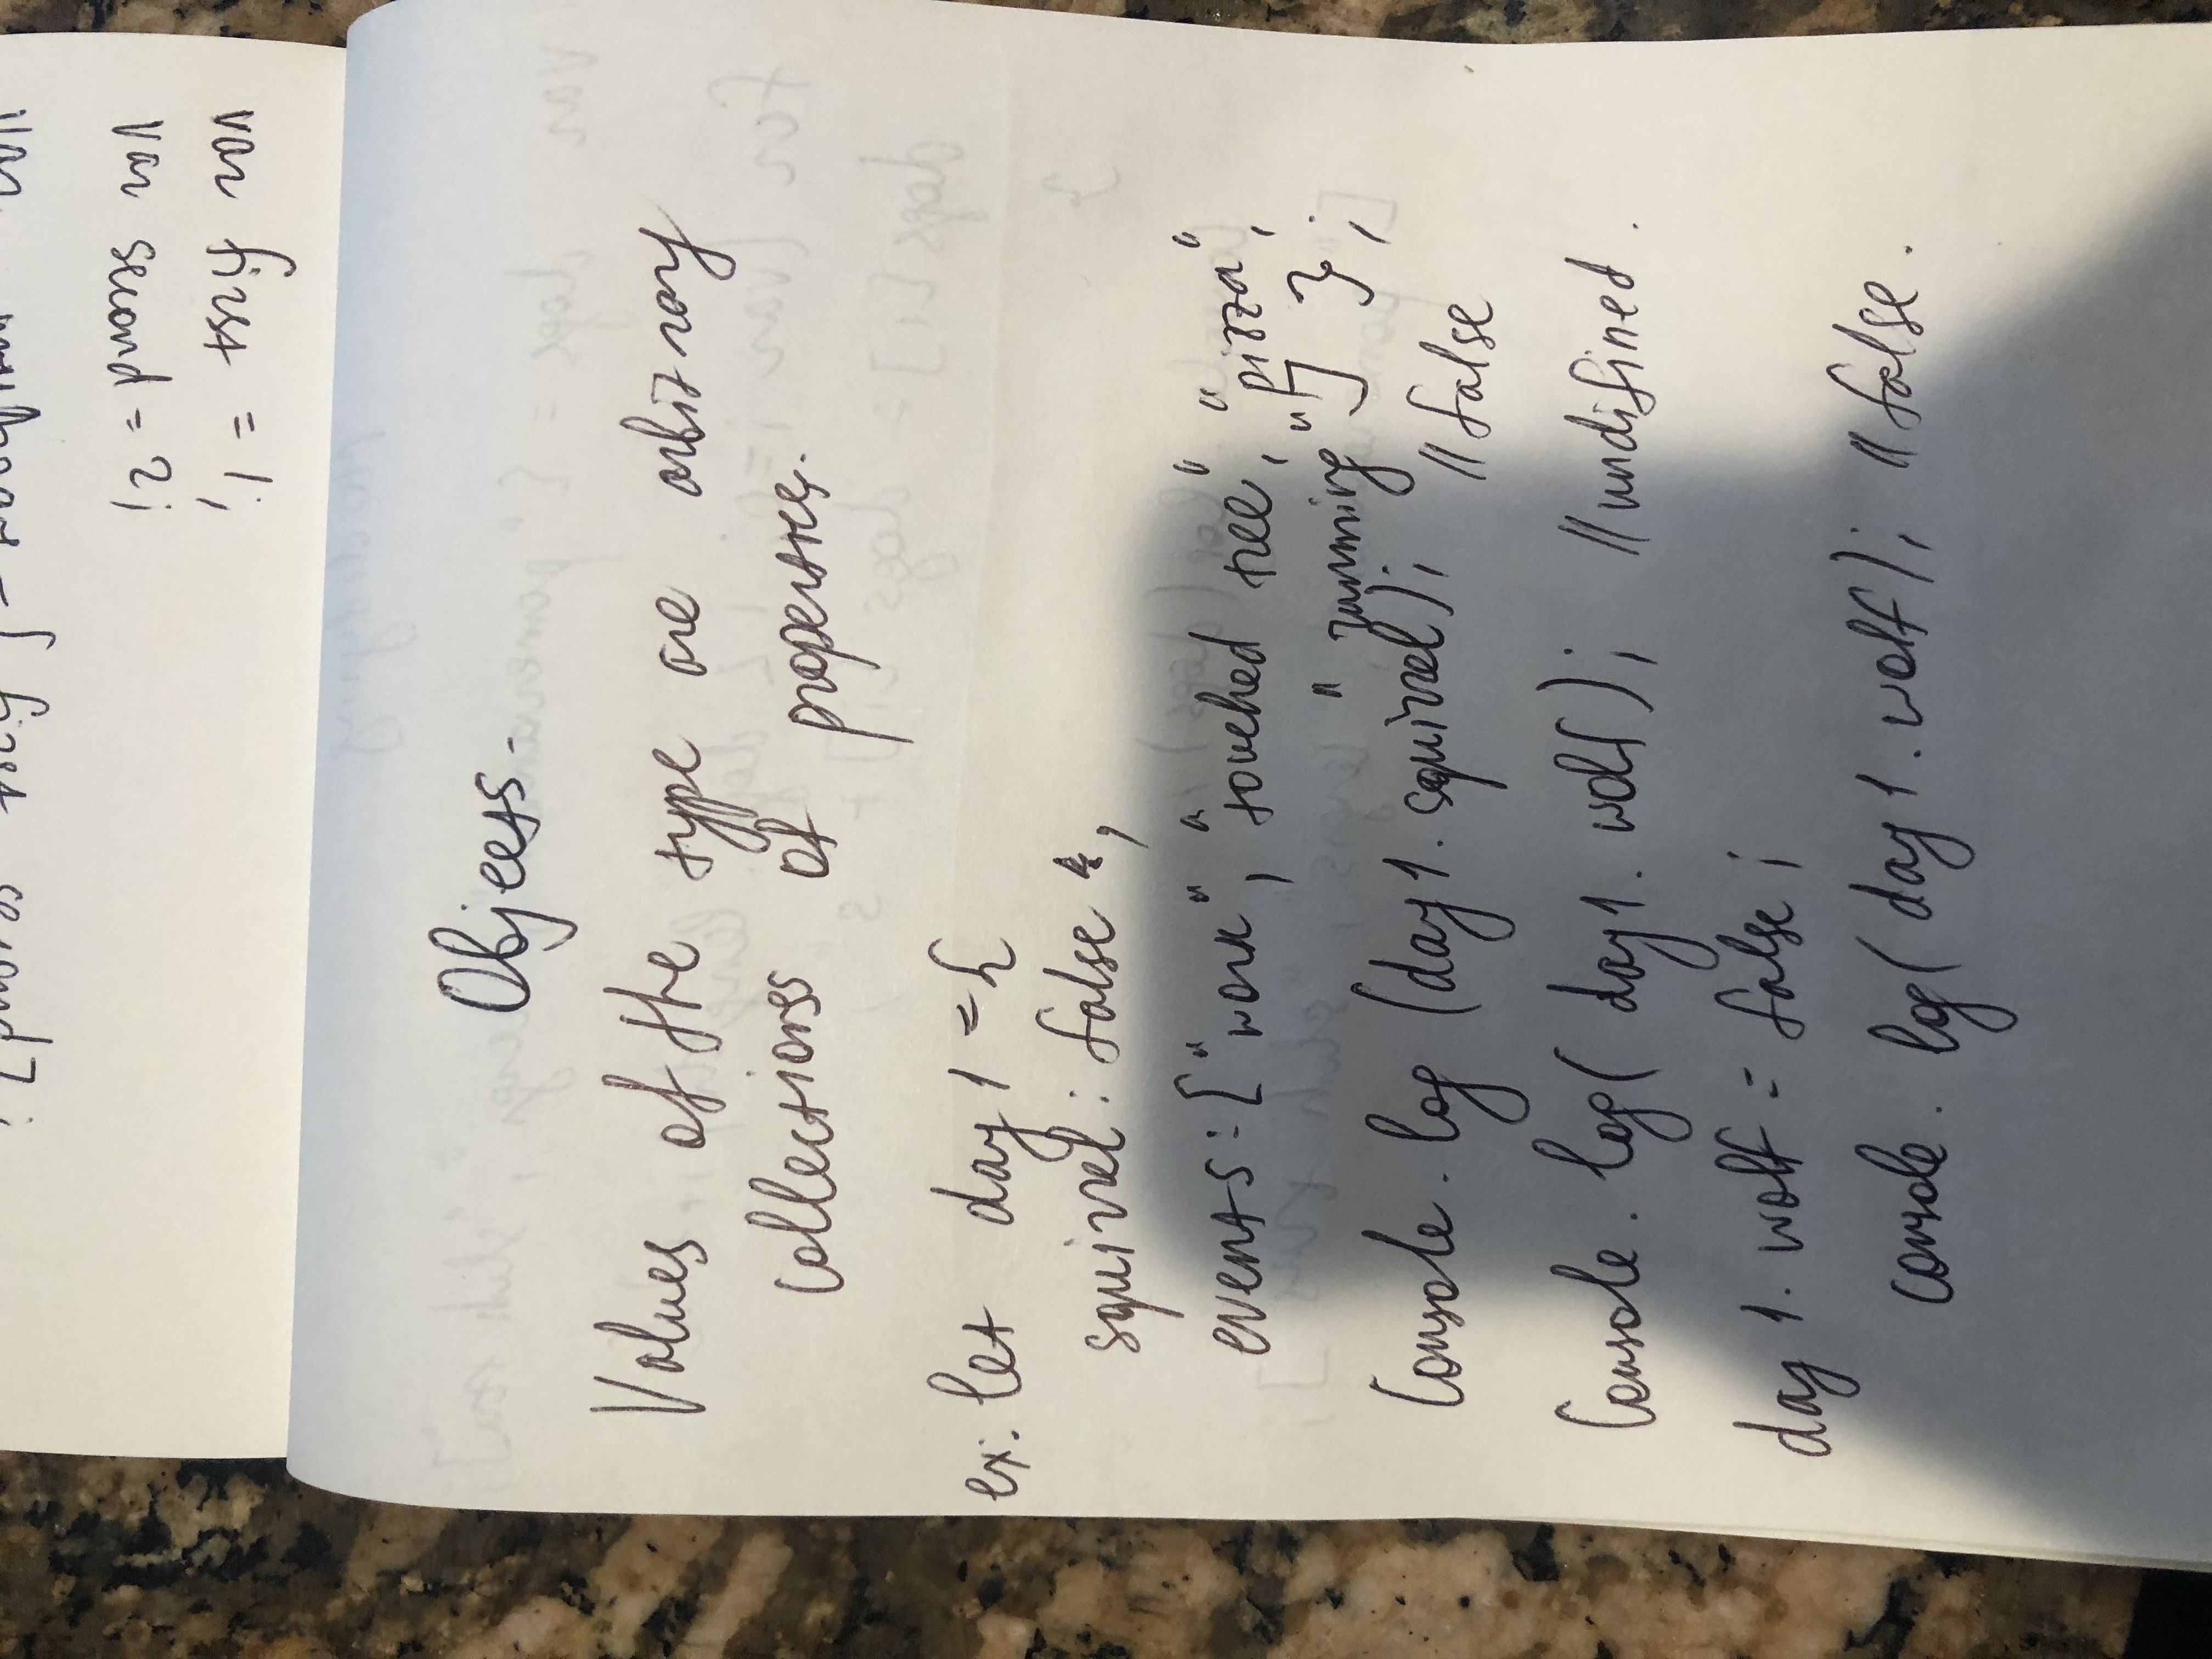 var second = 2;
var first = 1;
Objects.
Values of the type are arbitrary
collections of properties.
ex: let day1 = {
squirrel: false ,
events: ["work", "touched tree", "pizza",
"running"] };
Console.log (day1.squirrel);
//false
Console.log( day1.wolf); //undifined.
day1.wolf = false;
console.log(day1.wolf); //false.